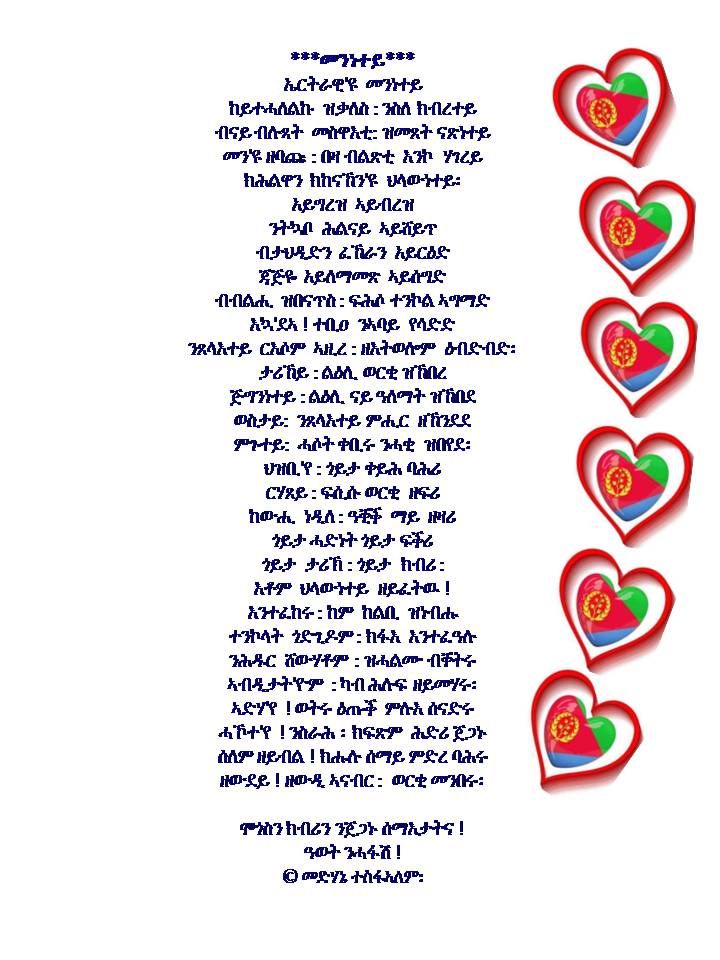 ***መንነተይ***
ኤርትራዊ'ዩ መንነተይ
ከይተሓለልኩ ዝቃለስ : ንስለ ክብረተይ
ብናይ ብሉጻት መስዋእቲ: ዝመጸት ናጽነተይ
መን'ዩ ዘባጩ : በዛ ብልጽቲ እንኮ ሃገረይ
ክሕልዋን ክከናኸን'ዩ ህላውነተይ፡
አይግረዝ ኣይብረዝ
ንትኳቦ ሕልናይ ኣይሸይጥ
ብታህዲድን ፈኸራን አይርዕድ
ጃጅዬ አይለማመጽ ኣይሰግድ
ብብልሒ ዝበናጥስ : ፍሕሶ ተንኮል ኣግማድ
እኳ'ደኣ ! ተቢዐ ንኣባይ የሳድድ
ንጸላእተይ ርእሶም ኣዚረ : ዘእትወሎም ዕብድብድ፡
ታሪኸይ : ልዕሊ ወርቂ ዝኸበረ
ጅግንነተይ : ልዕሊ ናይ ዓለማት ዝኸበደ
ወስታይ: ንጸላእተይ ምሒር ዘኸንደደ
ምጉተይ: ሓሶት ቀቢሩ ንሓቂ ዝበየደ፡
ህዝቢ'የ : ጎይታ ቀይሕ ባሕሪ
ርሃጸይ : ፍሲሱ ወርቂ ዘፍሪ
ከውሒ ነዲለ : ዓቒች ማይ ዘዛሪ
ጎይታ ሓድነት ጎይታ ፍቕሪ
ጎይታ ታሪኽ : ጎይታ ክብሪ :
እቶም ህላውነተይ ዘይፈትዉ !
እንተፈከሩ : ከም ከልቢ ዝነብሑ
ተንኮላት ጎድጊዶም : ክፋእ እንተፈዓሉ
ንሕዱር ሸውሃቶም : ዝሓልሙ ብቐትሩ
ኣብዲታት'ዮም : ካብ ሕሉፍ ዘይመሃሩ፡
ኣድሃ'የ ! ወትሩ ዕጡቅ ምሉእ ሰናድሩ
ሓኾተ'የ ! ንስራሕ ፡ ክፍጽም ሕድሪ ጀጋኑ
ሰለም ዘይብል ! ክሒሉ ሰማይ ምድረ ባሕሩ
ዘውደይ ! ዘውዲ ኣናብር : ወርቂ መንበሩ፡
ሞጎስን ክብሪን ንጀጋኑ ሰማእታትና !
ዓወት ንሓፋሽ !
© መድሃኔ ተስፋኣለም፡